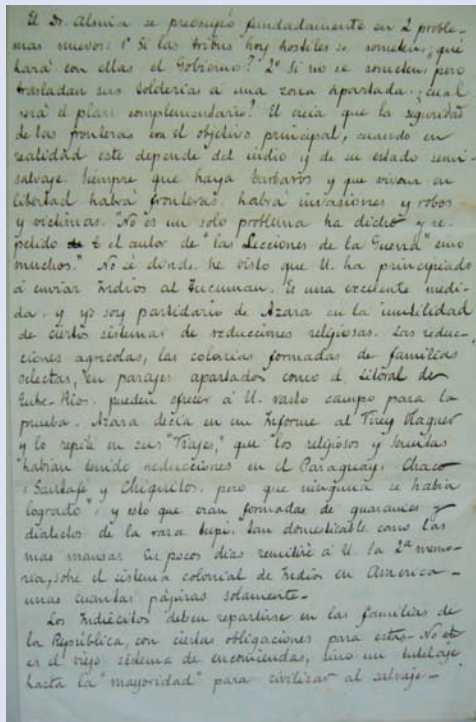 El Dr. Alsina se preocupó fundadamente en 2 proble-
mas nuevos: 1º Si las tribus hoy hostiles se someten, ¿que
hará con ellas el Gobierno? 2º Si no se someten, pero
trasladan sus tolderias a una zona apartada, ¿cual
será el plan complementario? El creia que la seguridad
de las fronteras era el objetivo principal, cuando en
realidad este depende del indio y de su estado semi-
salvaje. Siempre que haya barbaros y que vivan en
libertad habrá fronteras, habrá invasiones y robos
y victimas. "No es un solo problema ha dicho y re-
petido el autor de "las Lecciones de la Guerra" sino
muchos." No sé donde he visto que U. ha principiado
á enviar Indios al Tucuman. Es una excelente medi-
da, y yo soy partidario de Azara en la inutilidad
de ciertos sistemas de reducciones religiosas. Las reduc-
ciones agricolas, las colonias formadas de familias
selectas, en parajes apartados como el Litoral de
Entre-Rios, pueden ofrecer á U. vasto campo para la
prueba. Azara decia en un Informe al Virey
y lo repite en sus "Viajes," que los religiosos y
"habian tenido reducciones en el Paraguay, Chaco
, Santafé y Chiquitos, pero que ninguna se habia
logrado"; y esto que eran formadas de guaranies y
dialectos de la raza tupi, tan domesticable como las
mas mansas. En pocos dias remitiré á U. la 2ª memo-
ria, sobre el sistema colonial de Indios en America -
unas cuantas páginas solamente -
Los Indiecitos deben repartirse en las familias de
la República, con ciertas obligaciones para estas - No
es el viejo sistema de encomiendas, sino un tutelaje
hasta la "mayoridad" para civilizar al salvaje -